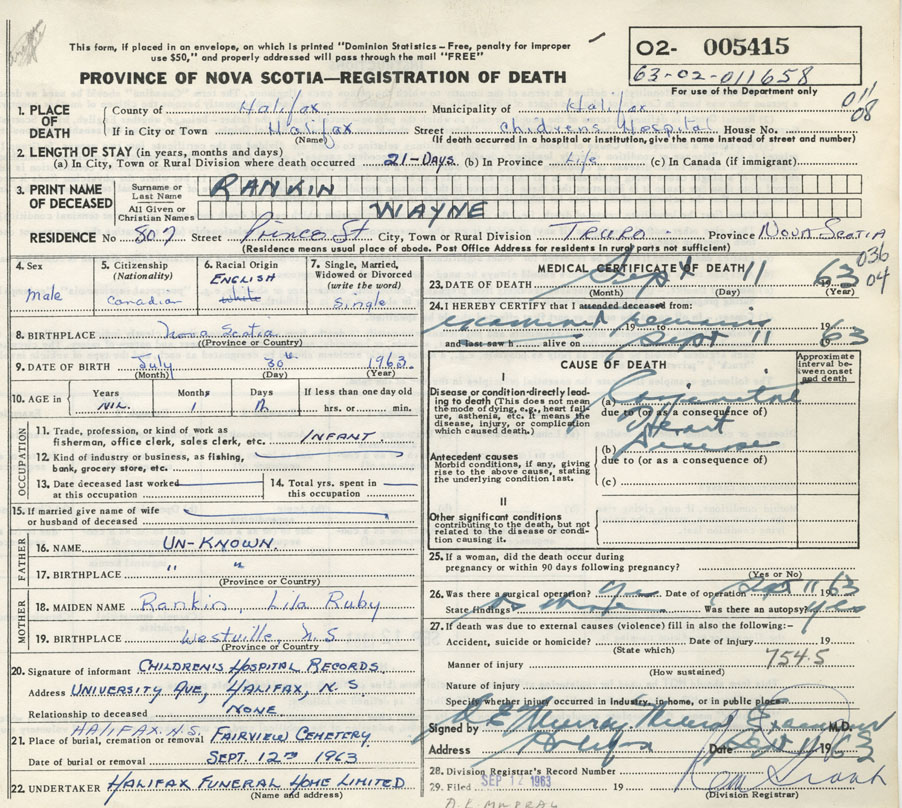 This form, if placed in an envelope, on which is printed "Dominion Statistics – Free, penalty for improper
use $50," and properly addressed will pass through the mail "FREE"
PROVINCE OF NOVA SCOTIA—REGISTRATION OF DEATH
O2- 005415
63-02-011658
For use of the Department only
011
08
1. PLACE OF DEATH County of Halifax Municipality of Halifax
If in City or Town Halifax Street Childrens Hospital House No.
(Name) (If death occurred in a hospital or institution, give the name instead of street and number)
2. LENGTH OF STAY (in years, months and days)
(a) In City, Town or Rural Division where death occurred 21-Days (b) In Province Life (c) In Canada (if immigrant)
3. PRINT NAME OF DECEASED Surname or Last Name RANKIN
All Given or Christian Names WAYNE
RESIDENCE No 807 Street Prince St City, Town or Rural Division TRURO Province Nova Scotia
(Residence means usual place of abode. Post Office Address for residents in rural parts not sufficient)
036
04
4. Sex Male
5. Citizenship (Nationality) Canadian
6. Racial Origin ENGLISH White
7. Single, Married, Widowed or Divorced (write the word) Single
8. BIRTHPLACE Nova Scotia
(Province or Country)
9. DATE OF BIRTH July 30th 1963
(Month) (Day) (Year)
10. AGE in Years NIL Months 1 Days 12 If less than one day old hrs. or min.
OCCUPATION
11. Trade, profession, or kind of work as fisherman, office clerk, sales clerk, etc. INFANT
12. Kind of industry or business, as fishing, bank, grocery store, etc.
13. Date deceased last worked at this occupation
14. Total yrs. spent in this occupation
15. If married give name of wife or husband of deceased
FATHER
16. NAME UN-KNOWN.
17. BIRTHPLACE " "
(Province or Country)
MOTHER
18. MAIDEN NAME Rankin, Lila Ruby
19. BIRTHPLACE Westville, N.S
(Province or Country)
20. Signature of informant CHILDREN'S HOSPITAL RECORDS
Address UNIVERSITY AVE, HALIFAX, N.S
Relationship to deceased NONE
HALIFAX.N.S.
21. Place of burial, cremation or removal FAIRVIEW CEMETERY
Date of burial or removal SEPT. 12TH 1963
22. UNDERTAKER HALIFAX FUNERAL HOME LIMITED
(Name and address)
MEDICAL CERTIFICATE OF DEATH
23. DATE OF DEATH Sept 11 63
(Month) (Day) (Year)
24. I HEREBY CERTIFY that I attended deceased from:
examined remains 19 to 19
and last saw h alive on Sept 11 63
CAUSE OF DEATH
Approximate interval between onset and death
I
Disease or condition directly leading to death (This does not mean the mode of dying, e.g., heart failure, asthenia, etc. It means the disease, injury, or complication which caused death.)
(a) Congenital
due to (or as a consequence of)
Heart
Disease
Antecedent causes
Morbid conditions, if any, giving rise to the above cause, stating the underlying condition last.
(b)
due to (or as a consequence of)
(c)
II
Other significant conditions
contributing to the death, but not related to the disease or condition causing it.
25. If a woman, did the death occur during
pregnancy or within 90 days following pregnancy?
(Yes or No)
26. Was there a surgical operation? Yes Date of operation Sept 11 1963
State findings as above Was there an autopsy? yes
27. If death was due to external causes (violence) fill in also the following:–
Accident, suicide or homicide? Date of injury 19
(State which)
754.5
Manner of injury
(How sustained)
Nature of injury
Specify whether injury occurred in industry, in home, or in public place
Signed by Murray, Medical Examiner M.D.
Address Halifax Date Sept 11 1963
28. Division Registrar's Record Number
29. Filed SEP 12 1963 19
(Division Registrar)